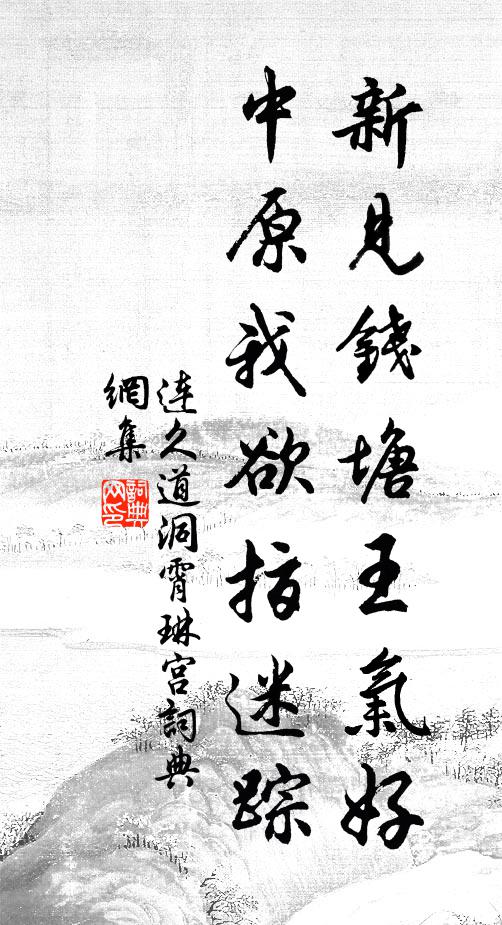 新見錢塘王氣好
中原我欲指迷踪
连久道洞霄琳宮詞典
網集
詞典網印